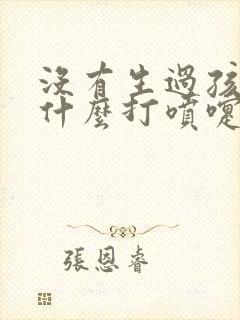 沒有生過孩
什麼打噴嚏
張恩睿